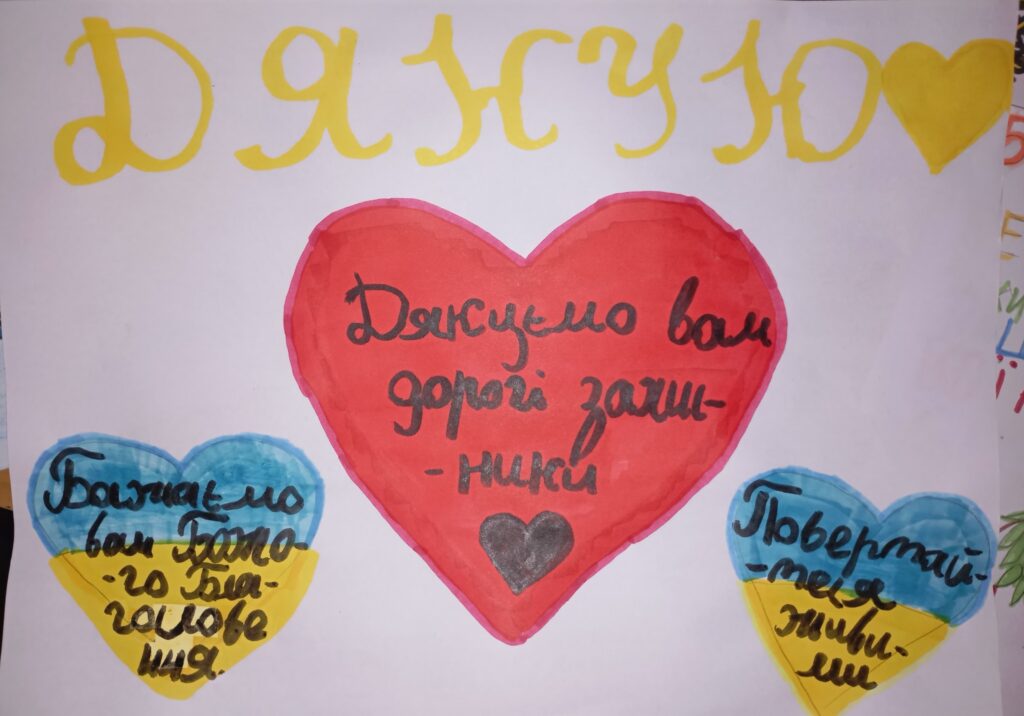 ДЯКУЮ
Дякуємо вам
дорогі захис-
-ники
Бажаємо
вам Божо-
-го Бла-
гослове
ння.
Повертай-
-теся
живи-
ми